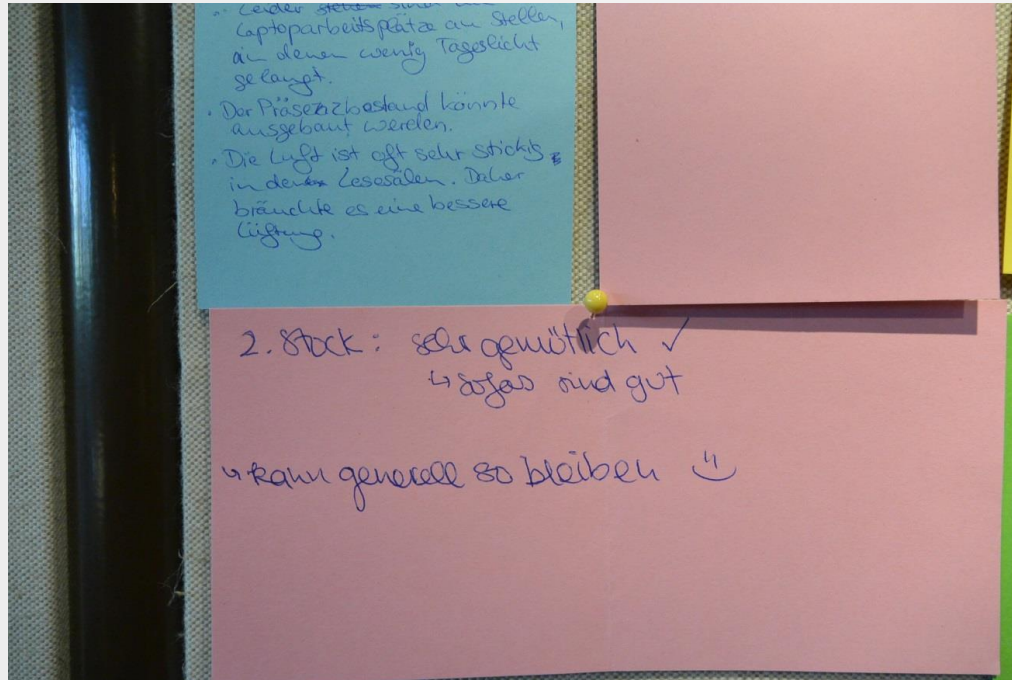 · Leider stehen sind die
Laptoparbeitsplätze an Stellen,
an denen wenig Tageslicht
gelangt.
· Der Präsenzbestand könnte
ausgebaut werden.
· Die Luft ist oft sehr stickig
in den Lesesälen. Daher
bräuchte es eine bessere
Lüftung.
2. Stock: sehr gemütlich ✓
↳ sofas sind gut
↳ kann generell so bleiben :)